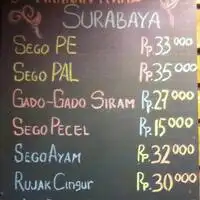 SURABAYA
SEGO PE Rp.33000
SEGO PAL Rp.35000
GADO-GADO SIRAM Rp.27000
SEGO PECEL Rp.15000
SEGO AYAM Rp.32000
RUJAK CINGUR Rp.30000